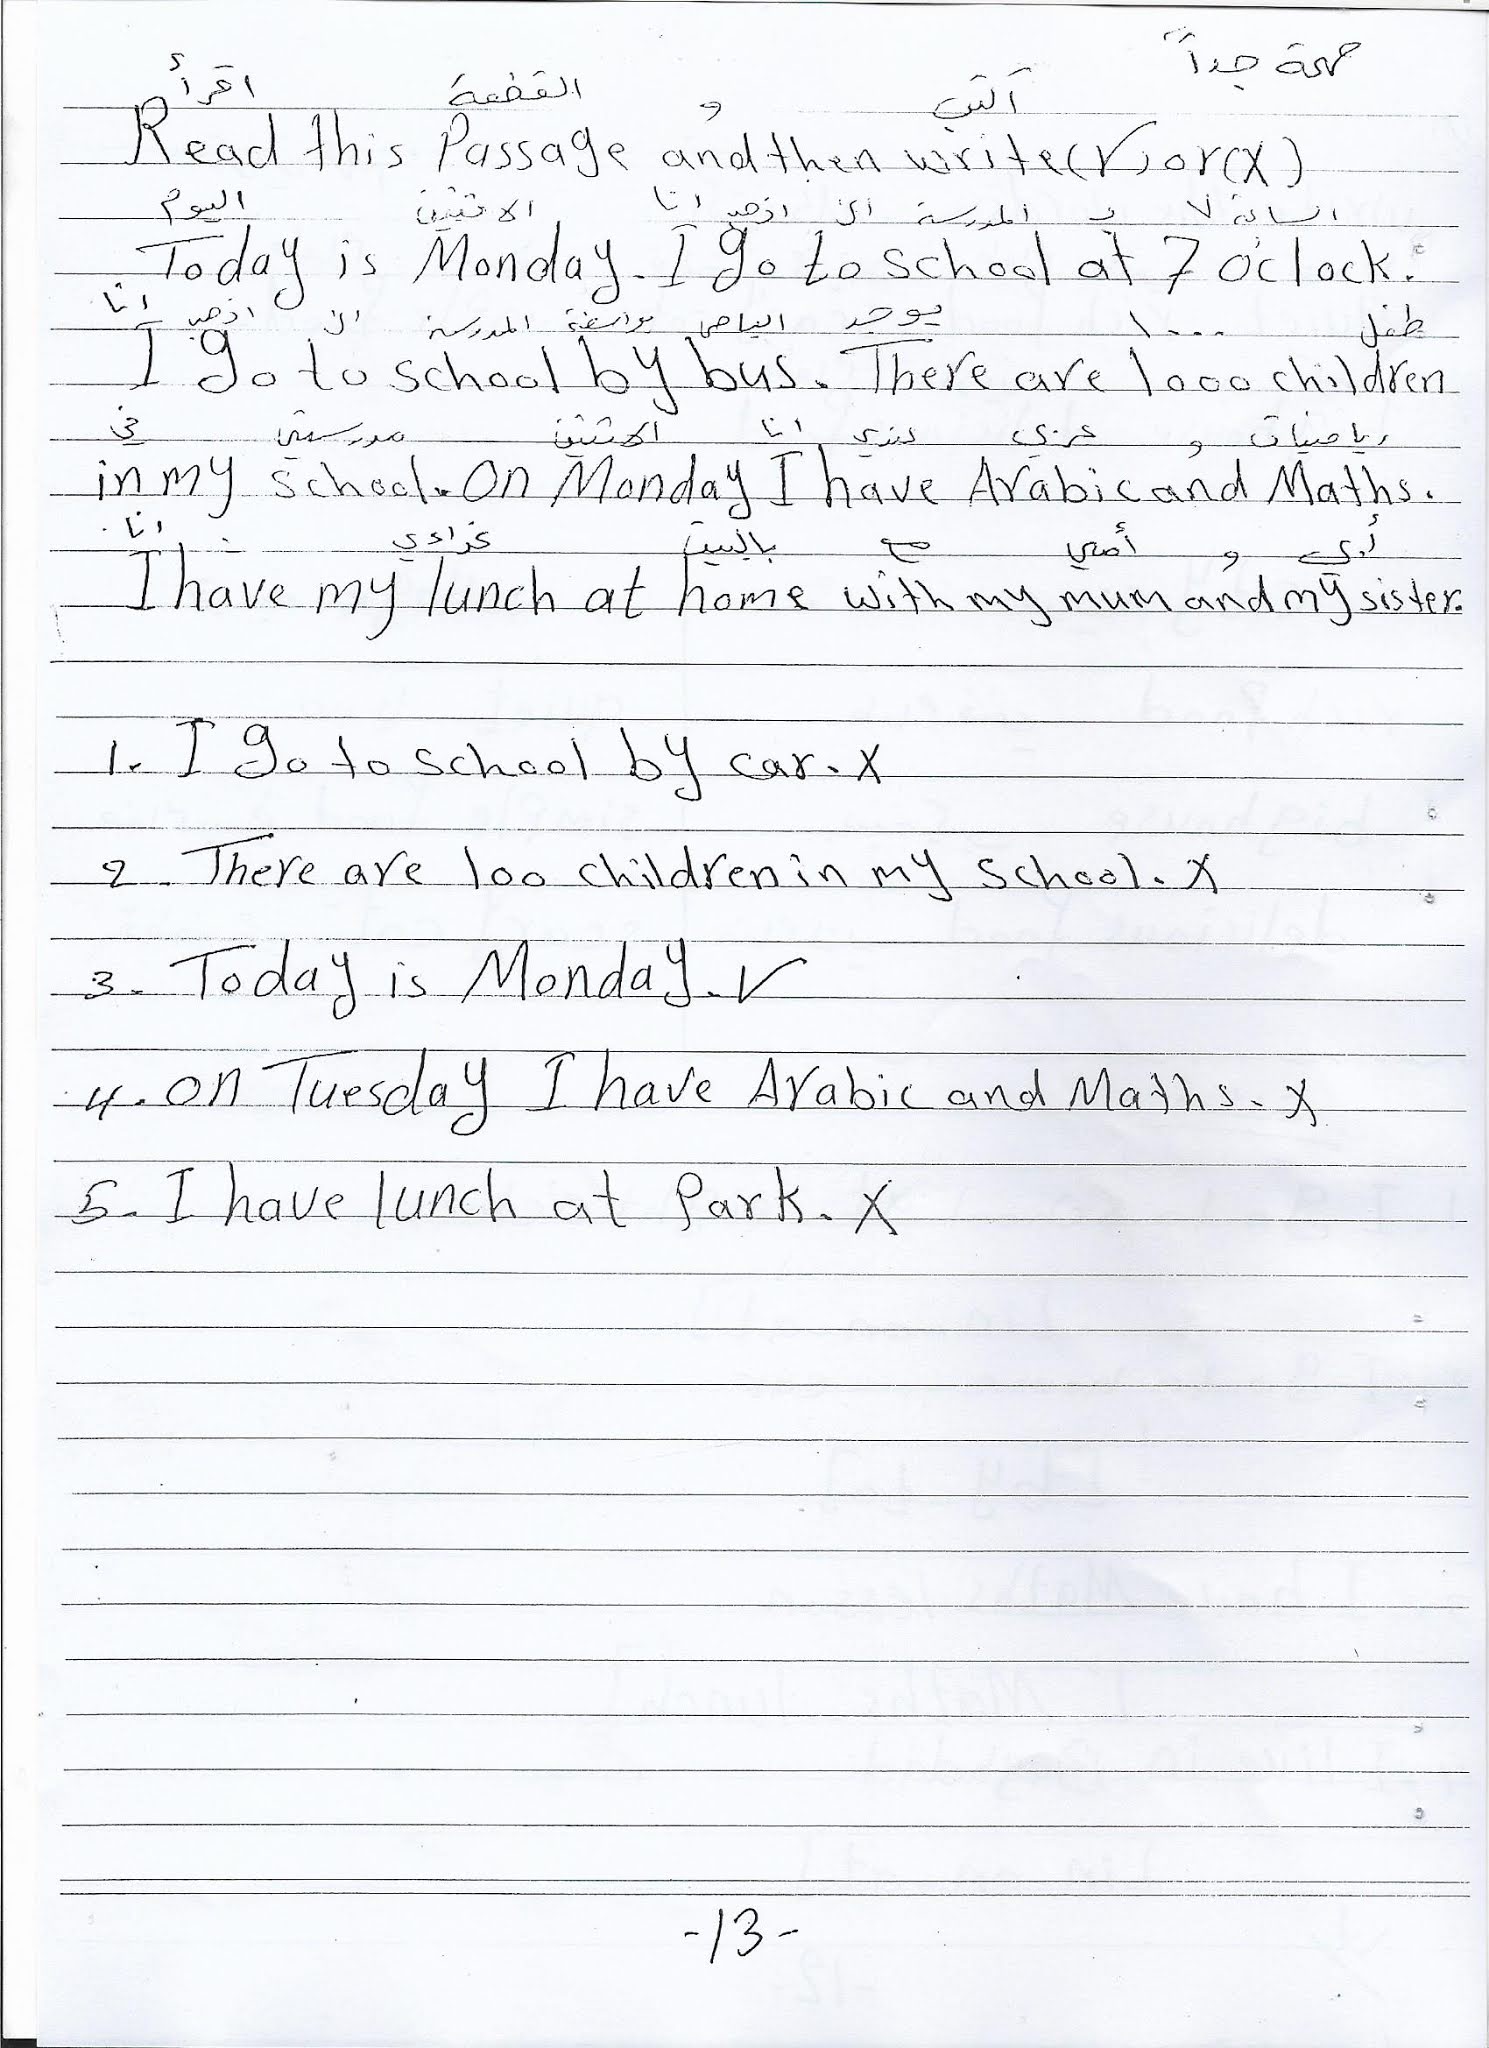 مهمة جداً
اقرأ القطعة و اكتب
Read this Passage and then write (✓) or (X)
اليوم الاثنين انا اذهب الى المدرسة الساعة 7
Today is Monday. I go to school at 7 o'clock.
انا اذهب الى المدرسة بواسطة الباص يوجد 1000 طفل
I go to school by bus. There are 1000 children
في مدرستي الاثنين انا لدي عربي و رياضيات
in my school. On Monday I have Arabic and Maths.
انا غدائي بالبيت مع أمي و
I have my lunch at home with my mum and my sister.
1. I go to school by car. X
2. There are 100 children in my school. X
3. Today is Monday. ✓
4. On Tuesday I have Arabic and Maths. X
5. I have lunch at Park. X
-13-